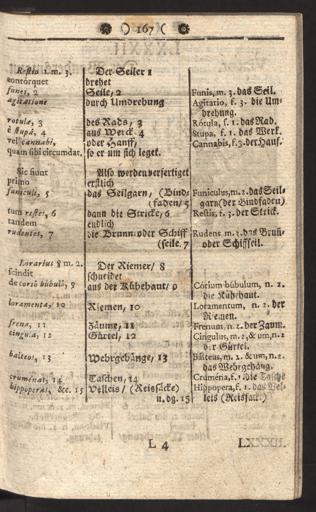 167
Restio 1 m. 3.
contorquet
funes, 2
agitatione
rotulæ, 3
è stupâ, 4
vel cannabi,
quam sibi circumdat.
Sic fiunt
primo
funiculi, 5
tum restes, 6
tandem
rudentes, 7
Lorarius 8 m. 2.
scindit
de corio bubulô, 9
loramenta, 10
frena, 11
cingula, 12
balteos, 13
crumenas, 14
hippoperas, &c. 15
Der Seiler 1
drehet
Seile, 2
durch Umdrehung
des Rads, 3
aus Werck 4
oder Hanff/
so er um sich leget.
Also werden verfertiget
erstlich
das Seilgarn, (Bind-
faden/5
dann die Stricke/6
endlich
die Brunn- oder Schiff-
seile. 7
Der Riemer/ 8
schneidet
aus der Kühehaut/ 9
Riemen, 10
Zäume, 11
Gürtel, 12
Wehrgehänge, 13
Taschen, 14
Velleis/ (Reissäcke)
u. dg. 15
Funis, m. 3. das Seil.
Agitatio, f. 3. die Um-
drehung.
Rótula, f. 1. das Rad.
Stupa, f. 1. das Werk.
Cannabis, f. 3. der Hanf.
Funiculus, m. 2. das Seil-
garn (der Bindfaden)
Restis, f. 3. der Strick.
Rudens m. 3. das Brun-
oder Schiffseil.
Córium búbulum, n. 2.
die Kühhaut.
Loramentum, n. 2. der
Riemen.
Frenum, n. 2. der Zaum.
Cingulus, m. 2. & um, n. 2.
der Gürtel.
Bálteus, m. 2. & um, n. 2.
das Wehrgehäng.
Cruména, f. 1. die Tasche
Hippopera, f. 1. das Vel-
leis (Reissack.)
L 4
LXXXII.